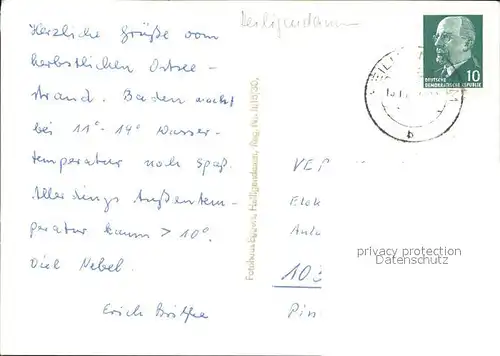 Heiligendamm
Herzliche Grüße vom
herbstlichen Ostsee-
strand. Baden macht
bei 11°-14° Wasser-
temperatur noch Spaß.
Allerdings Außentem-
peratur kaum > 10°.
Viel Nebel.
Erich
10
DEUTSCHE
DEMOKRATISCHE REPUBLIK
b
Fotohaus Eggers, Heiligendamm, Reg. No.
VE
Elek
Anla
103
Pin
privacy protection
Datenschutz